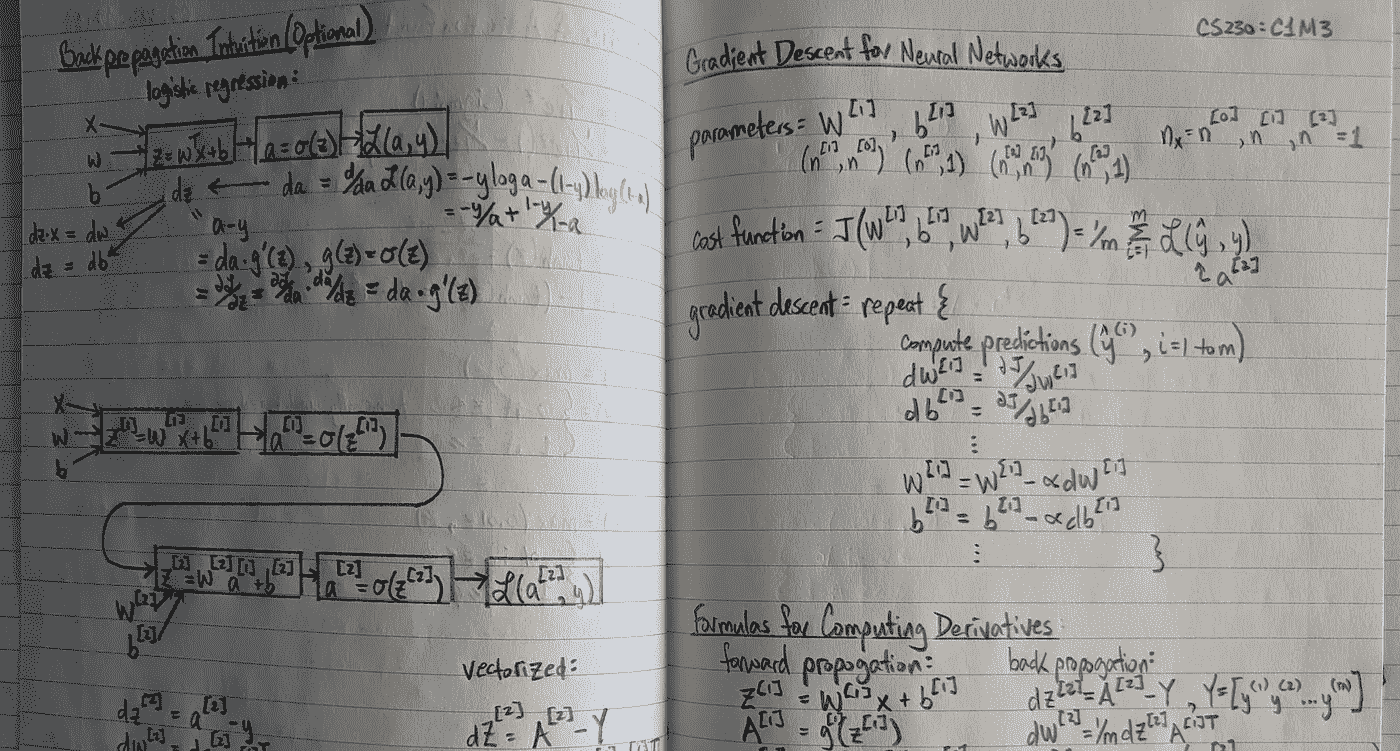 Backpropagation Intuition (Optional)
logistic regression:
x
w
b
z = wᵀx+b
a = σ(z)
L(a, y)
dz ← da = d/da L(a,y) = -y log a - (1-y) log(1-a)
= -y/a + 1-y/1-a
" a-y
dz·x = dw
dz = db
= da·g'(z), g(z) = σ(z)
= ∂J/∂z = ∂J/∂a · da/dz = da·g'(z)
x
w
b
z^[1] = w^[1]x + b^[1]
a^[1] = σ(z^[1])
z^[2] = w^[2]a^[1] + b^[2]
a^[2] = σ(z^[2])
L(a^[2], y)
W^[2]
b^[2]
vectorized:
dz^[2] = a^[2] - y
dZ^[2] = A^[2] - Y
CS230: C1M3
Gradient Descent for Neural Networks
parameters = W^[1], b^[1], W^[2], b^[2] n_x = n^[0], n^[1], n^[2] = 1
(n^[1], n^[0]) (n^[1], 1) (n^[2], n^[1]) (n^[2], 1)
cost function = J(W^[1], b^[1], W^[2], b^[2]) = 1/m Σ_{i=1}^m L(ŷ, y)
↑ a^[2]
gradient descent = repeat {
compute predictions (ŷ^(i), i=1 to m)
dw^[1] = ∂J/∂w^[1]
db^[1] = ∂J/∂b^[1]
⋮
W^[1] = W^[1] - αdw^[1]
b^[1] = b^[1] - αdb^[1]
⋮ }
Formulas for Computing Derivatives
forward propogation:
z^[1] = W^[1]x + b^[1]
A^[1] = g(z^[1])
back propogation:
dz^[2] = A^[2] - Y, Y = [y^(1) y^(2) ... y^(m)]
dw^[2] = 1/m dz^[2] A^[1]T